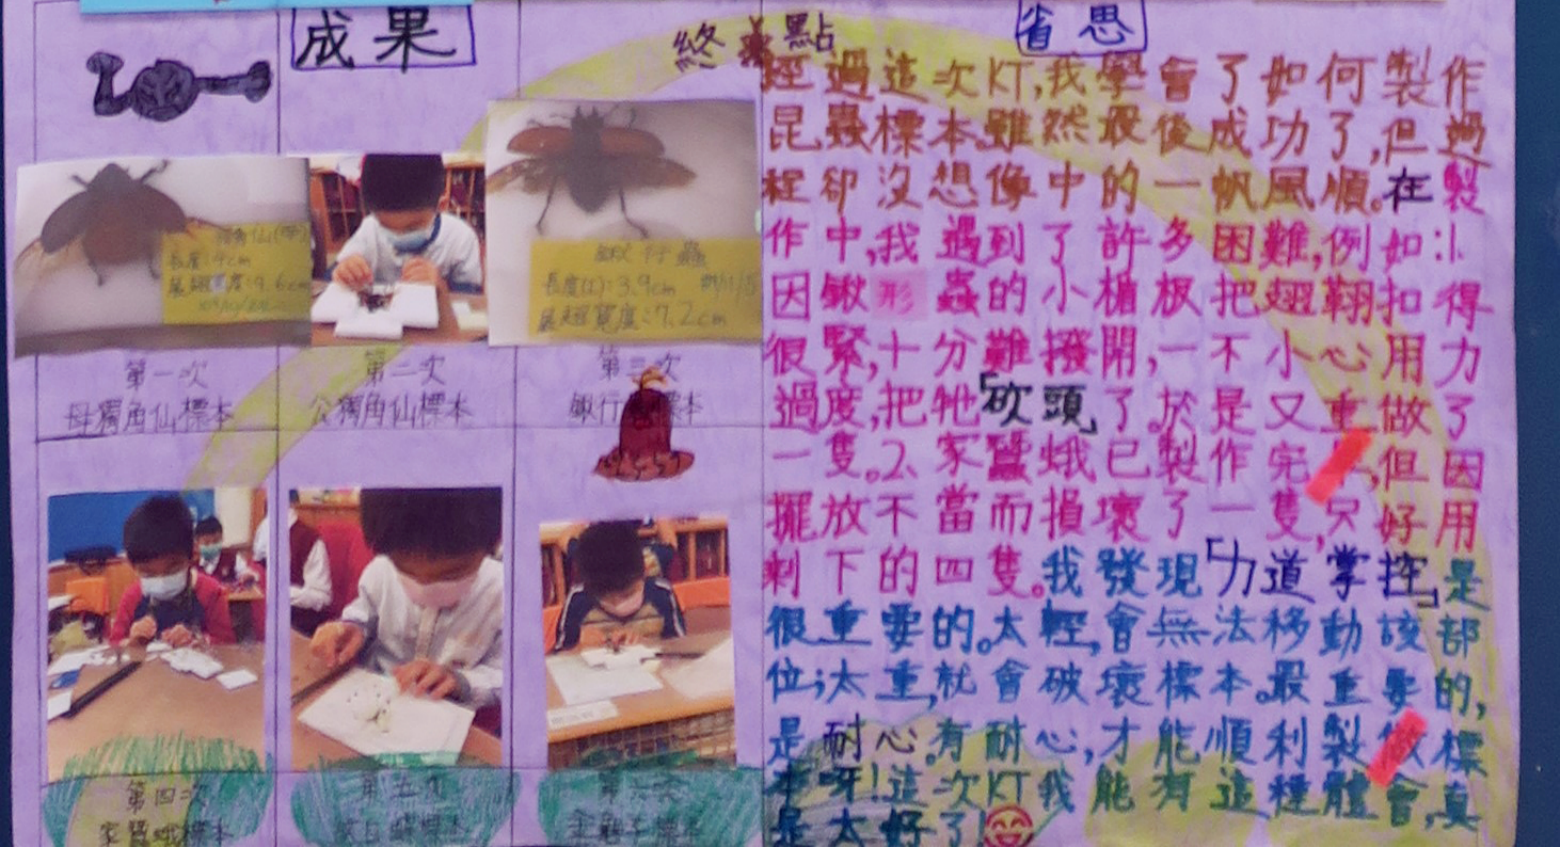 成果
終點
省思
獨角仙(母)
長度:4cm
展翅寬度:9.6cm
鍬形蟲
長度(?):3.9cm
展翅寬度:7.2cm
第一次
母獨角仙標本
第二次
公獨角仙標本
第三次
標本
第四次
家蠶蛾標本
第五次
標本
第六次
標本
經過這次KT,我學會了如何製作
昆蟲標本。雖然最後成功了,但過
程卻沒想像中的一帆風順。在製
作中,我遇到了許多困難,例如:1.
因鍬形蟲的小楯板把翅鞘扣得
很緊,十分難撥開,一不小心用力
過度,把牠「砍頭」了。於是又重做了
一隻。2、家蠶蛾已製作完,但因
擺放不當而損壞了一隻,只好用
剩下的四隻。我發現「力道掌控」是
很重要的。太輕,會無法移動該部
位;太重,就會破壞標本。最重要的,
是耐心。有耐心,才能順利製做標
本呀!這次KT我能有這種體會,真
是太好了!